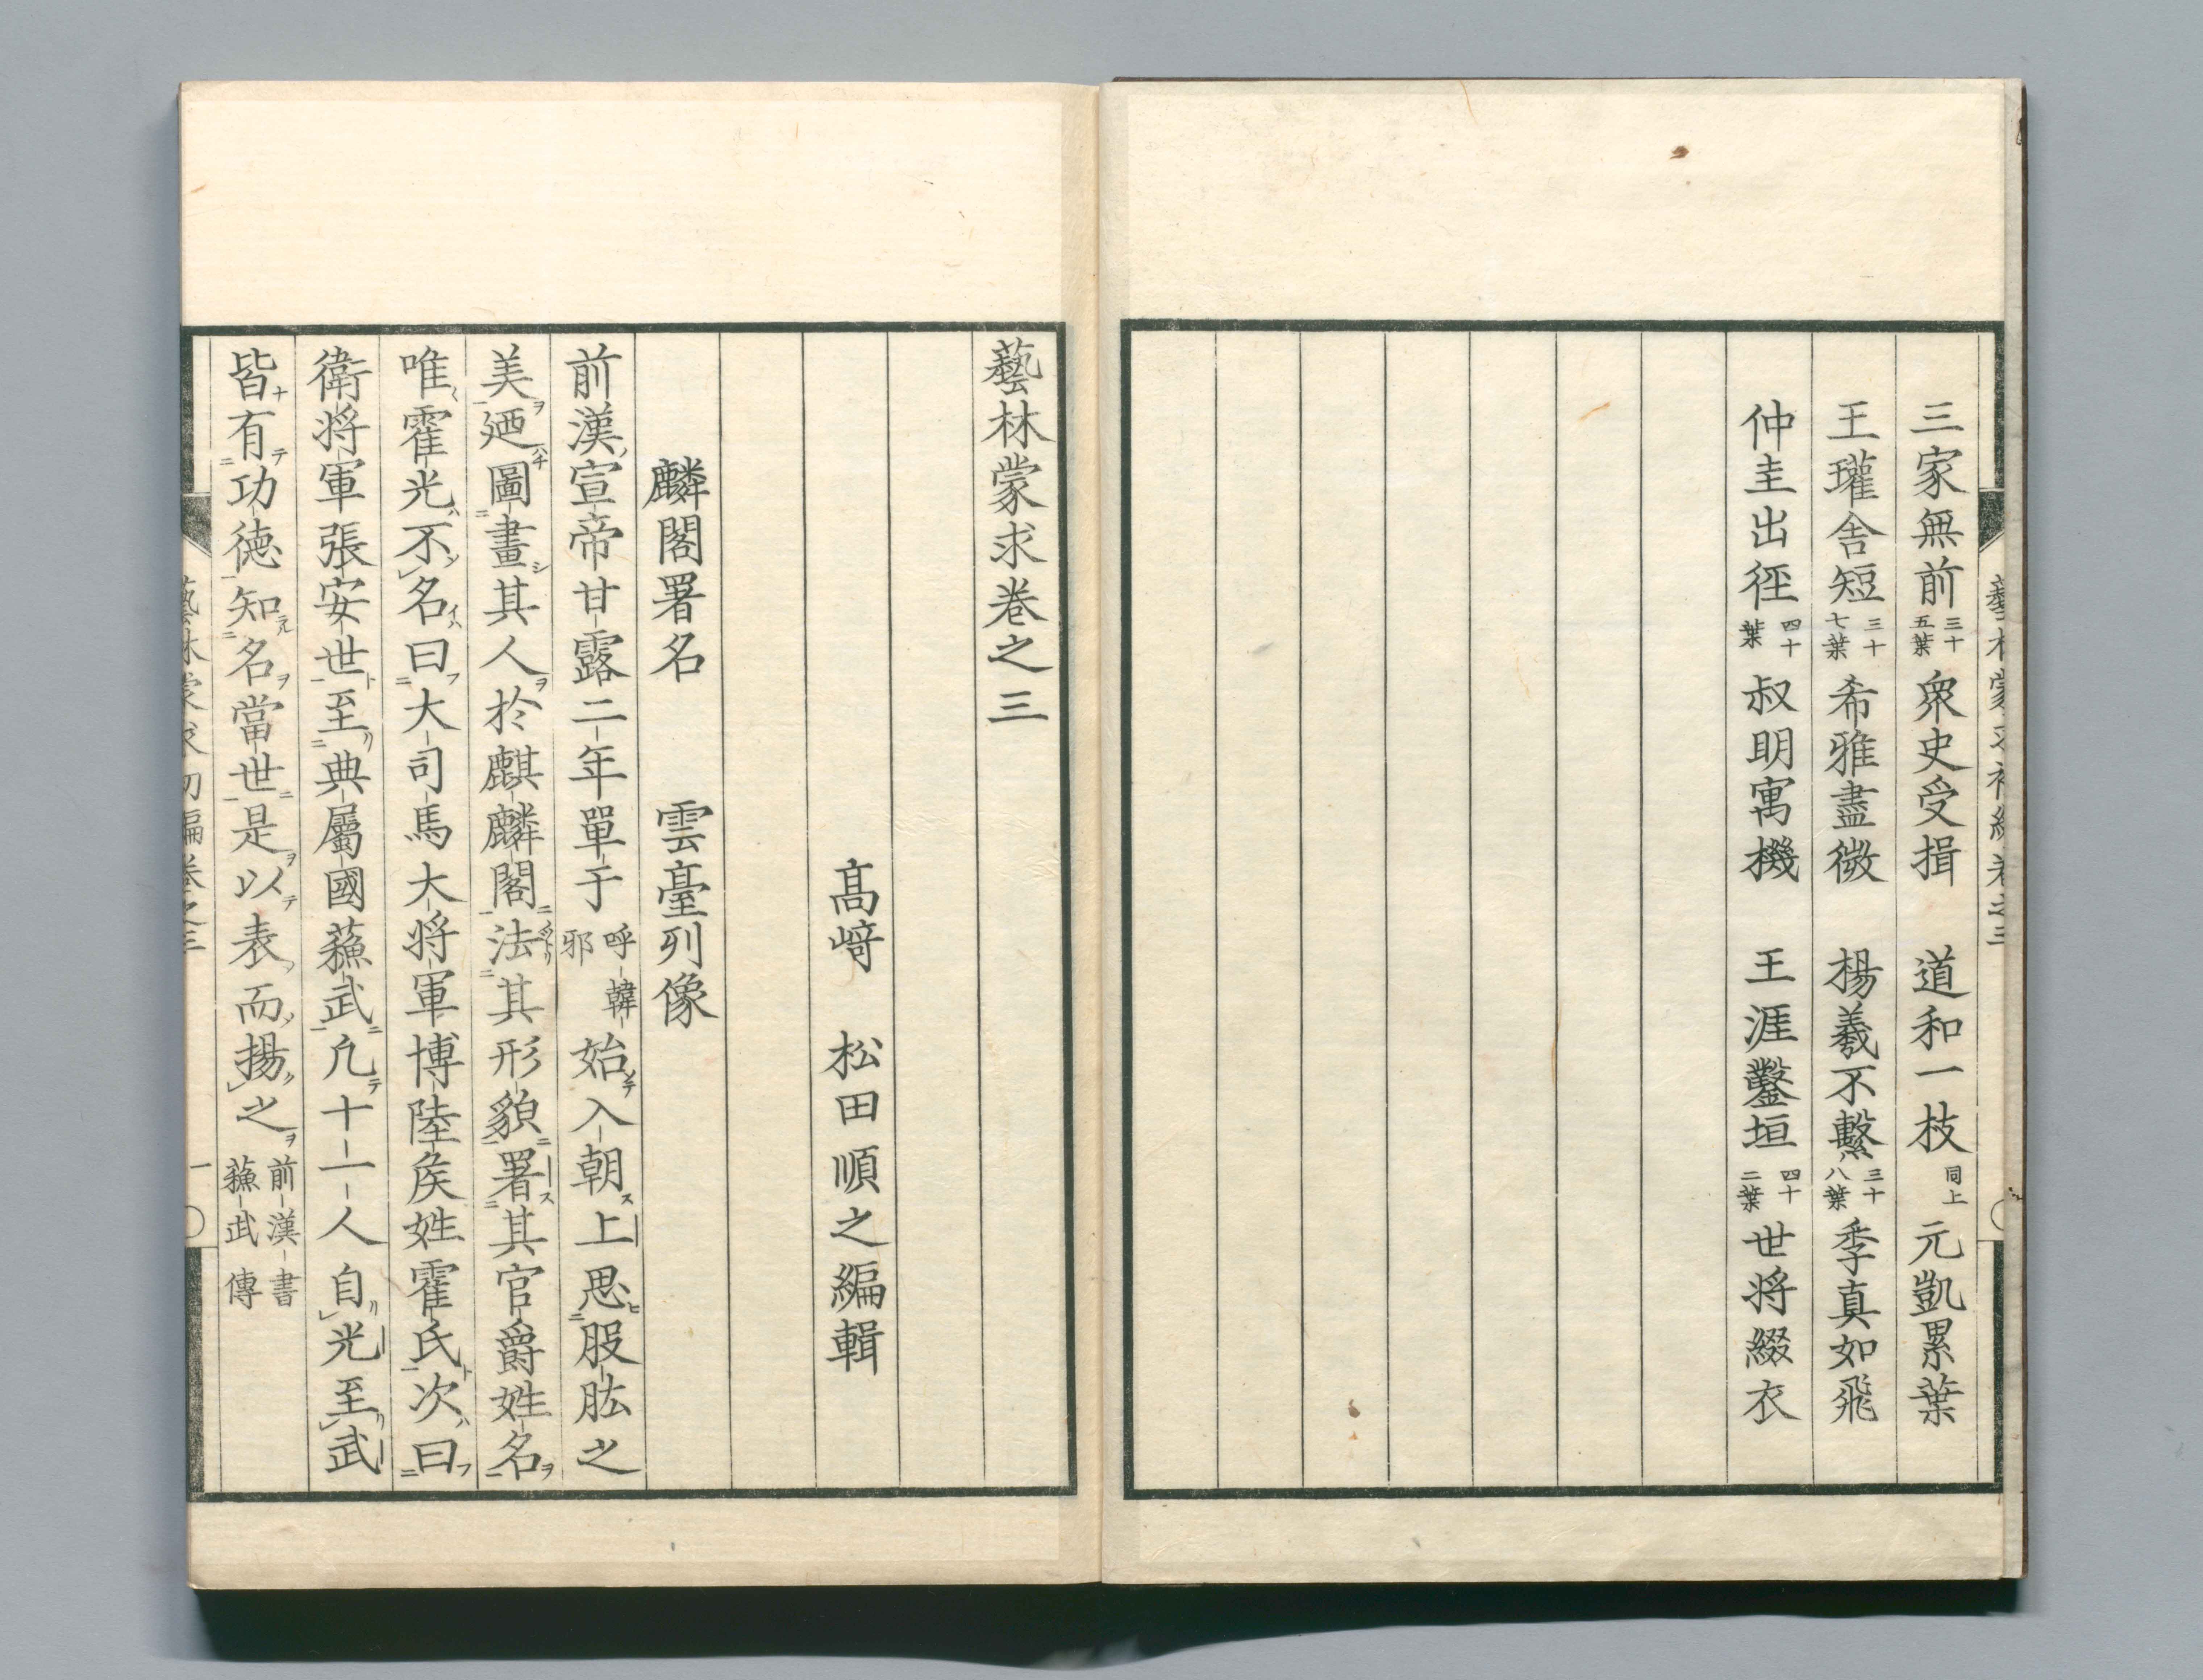 三家無前 三十五葉 衆史受揖 道和一枝 同上 元凱累葉
王瓘舎短 三十七葉 希雅盡微 楊羲不繋 三十八葉 季真如飛
仲圭出徑 四十葉 叔明寓機 王涯鑿垣 四十二葉 世将綴衣
藝林蒙求卷之三
髙﨑 松田順之編輯
麟閣署名 雲臺列像
前漢ノ宣帝甘露二年單于呼韓邪始メテ入朝ス上思ヒ股肱之
美ヲ廼チ圖畫シ其人ヲ於麒麟閣ニ法其形貌ニ署ス其官爵姓名ヲ
唯霍光ハ不シ名イハ曰フ大司馬大将軍博陸矦姓霍氏ト次ハ曰フ
衛将軍張安世ト至リ典屬國蘓武ニ凡テ十一人自リ光至リ武
皆ナ有テ功德知ラル名ヲ當世ニ是ヲ以テ表ノ而揚之ヲ 前漢書蘓武傳
藝林蒙求初編卷之三 一